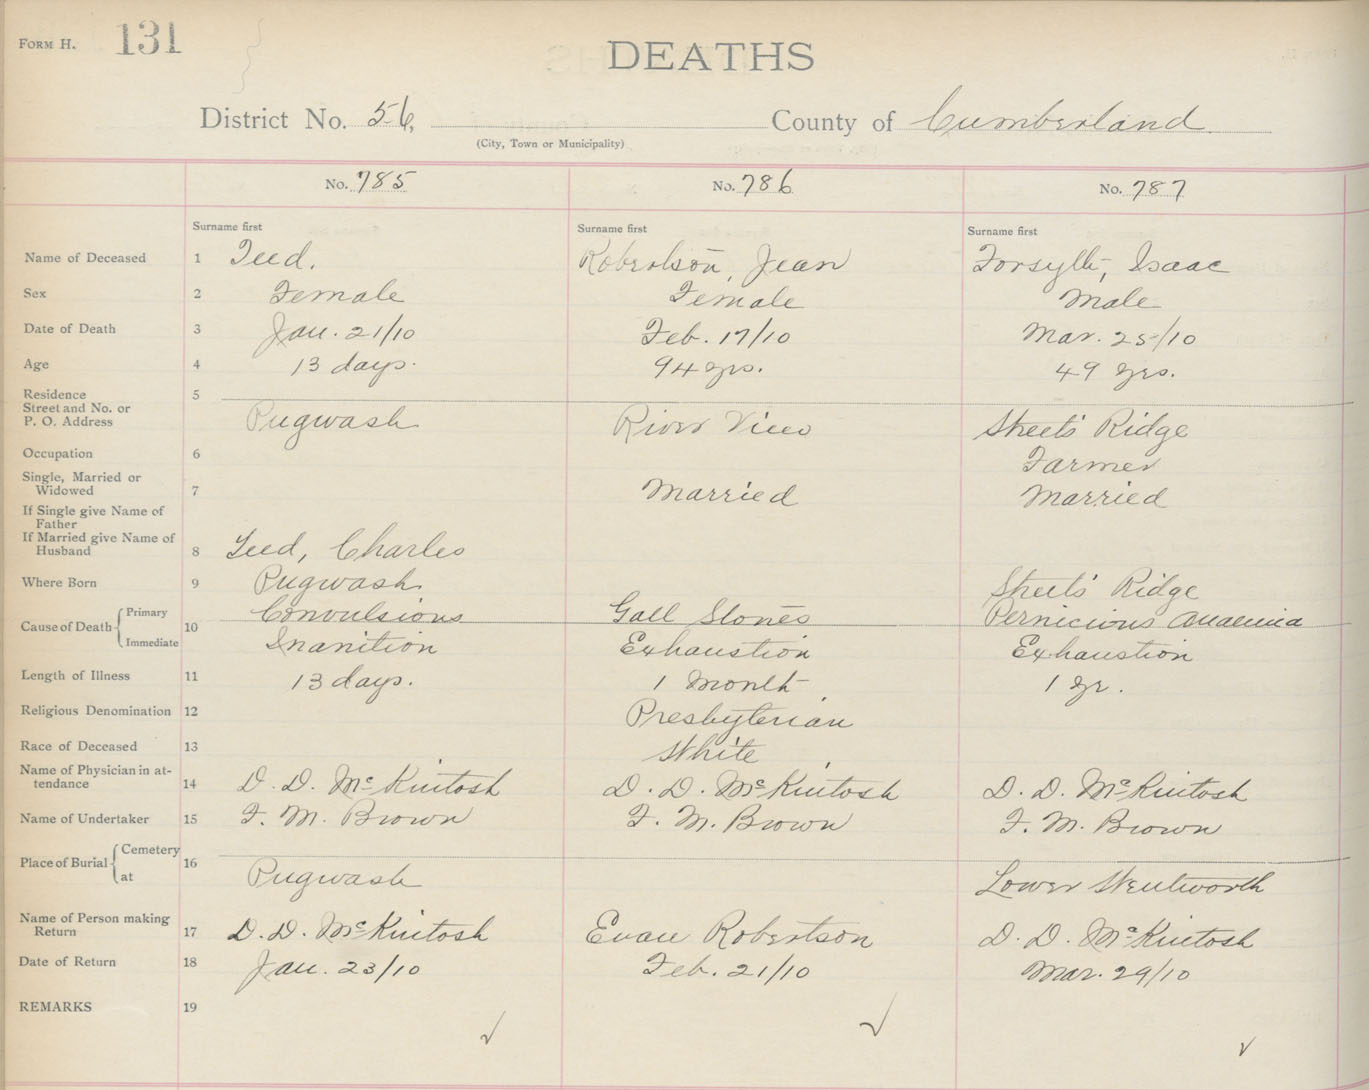 FORM H. 131
DEATHS
District No. 56, County of Cumberland
(City, Town or Municipality)
No. 785 No. 786 No. 787
Surname first Surname first Surname first
Name of Deceased 1 Teed. Robertson, Jean Forsyth, Isaac
Sex 2 Female Female Male
Date of Death 3 Jan. 21/10 Feb. 17/10 Mar. 25/10
Age 4 13 days. 94 yrs. 49 yrs.
Residence 5
Street and No. or
P. O. Address Pugwash River View Streets Ridge
Occupation 6 Farmer
Single, Married or
Widowed 7 Married Married
If Single give Name of
Father
If Married give Name of
Husband 8 Teed, Charles
Where Born 9 Pugwash Streets Ridge
Cause of Death Primary 10 Convulsions Gall Stones Pernicious Anaemia
Immediate Inanition Exhaustion Exhaustion
Length of Illness 11 13 days. 1 Month 1 yr.
Religious Denomination 12 Presbyterian
Race of Deceased 13 White
Name of Physician in at-
tendance 14 D. D. McKintosh D. D. McKintosh D. D. McKintosh
Name of Undertaker 15 F. M. Brown F. M. Brown F. M. Brown
Place of Burial Cemetery 16
at Pugwash Lower Wentworth
Name of Person making
Return 17 D. D. McKintosh Evan Robertson D. D. McKintosh
Date of Return 18 Jan. 23/10 Feb. 21/10 Mar. 29/10
REMARKS 19